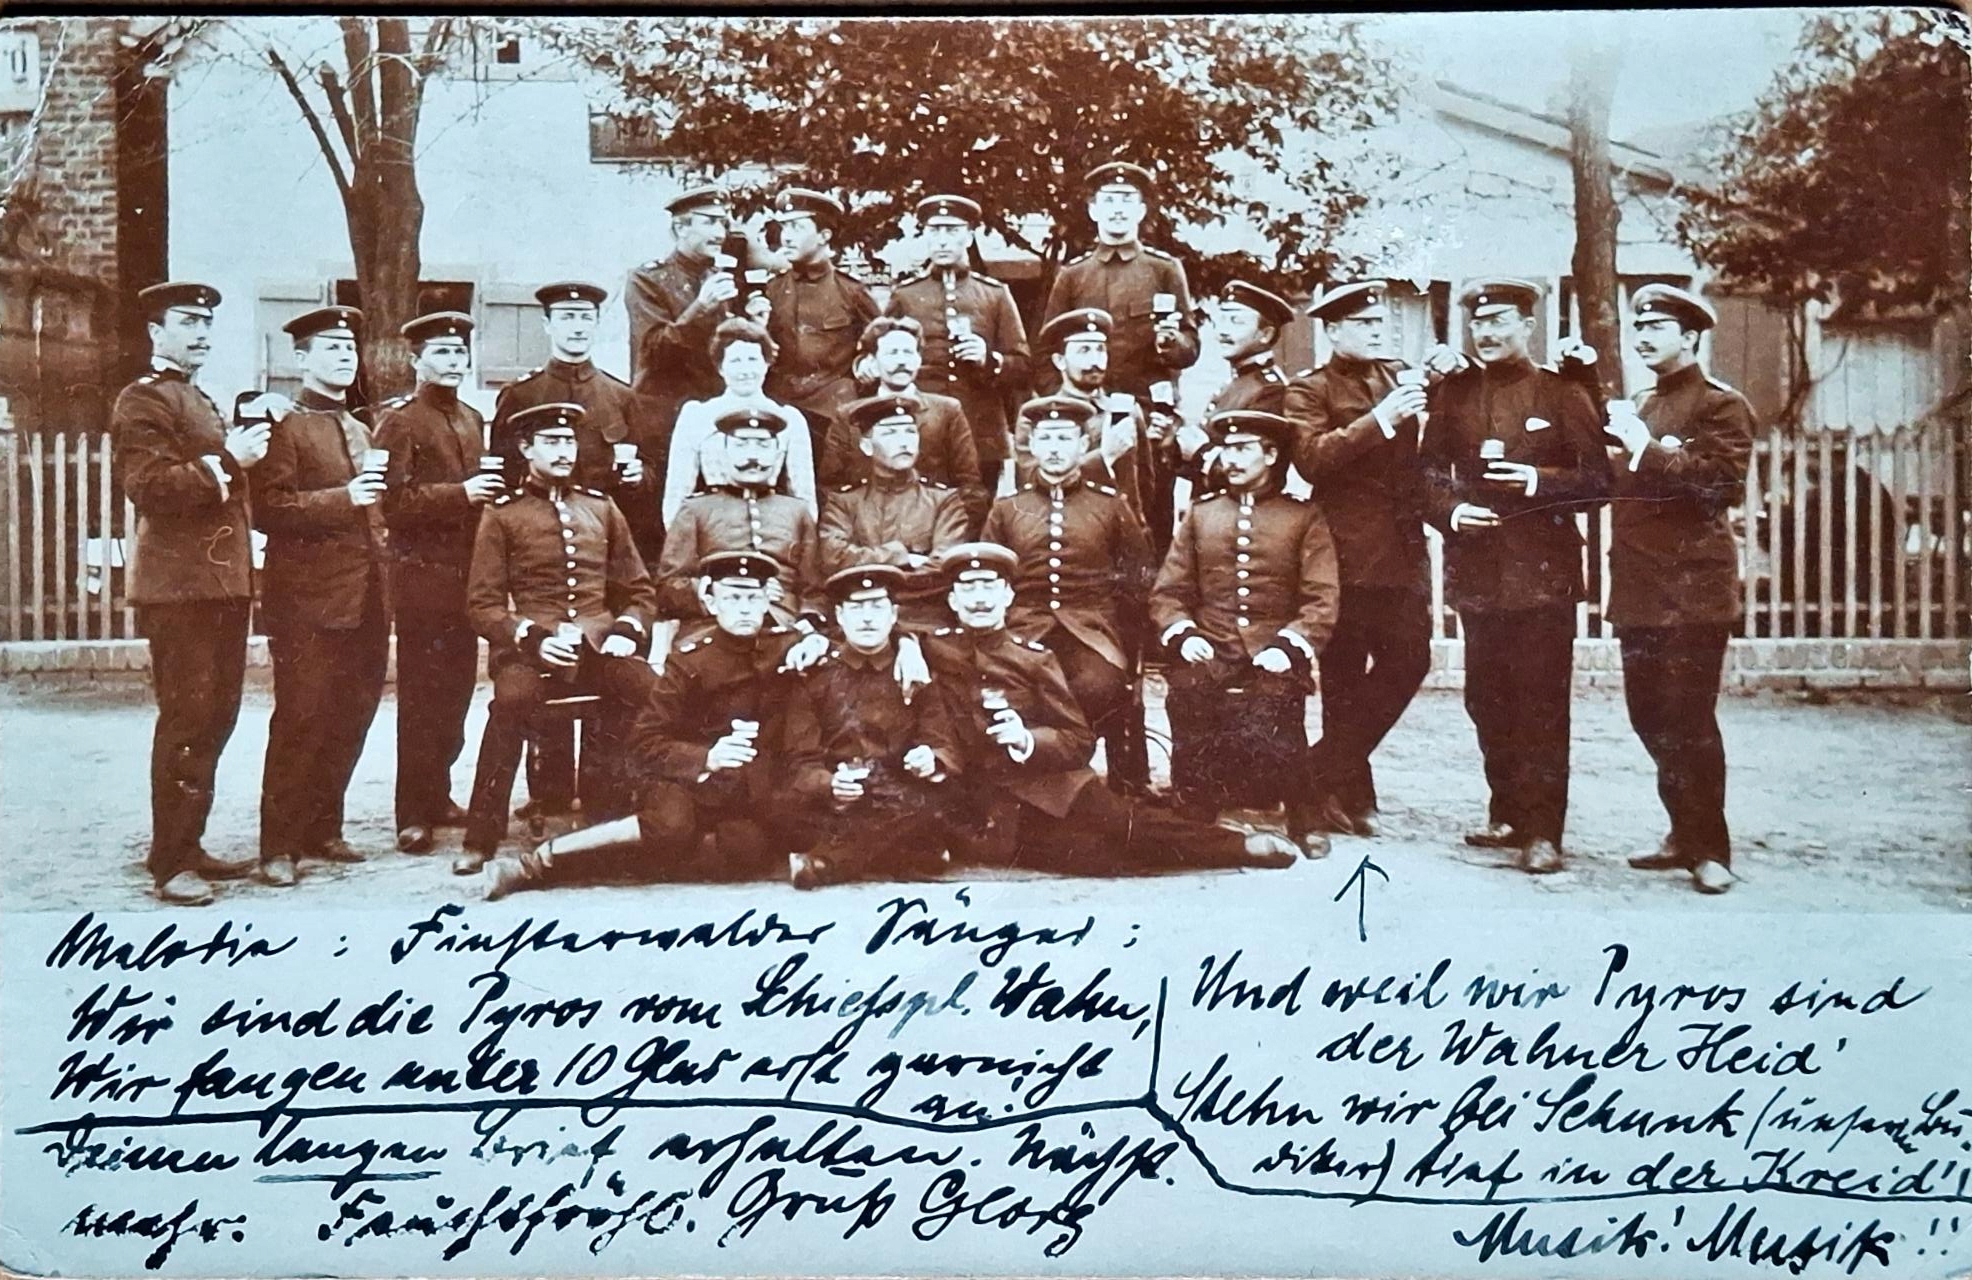 Melodie : Finsterwalder Sänger :
Wir sind die Pyros vom Schießpl. Wahn,
Wir fangen unter 10 Glas erst garnicht
an!
Und weil wir Pyros sind
der Wahner Heid'
Stehn wir bei Schunk (unserm Bu-
diker) tief in der Kreid'!
Musik! Musik!!
Deinen langen Brief erhalten. Nächst.
mehr. Gruß Georg